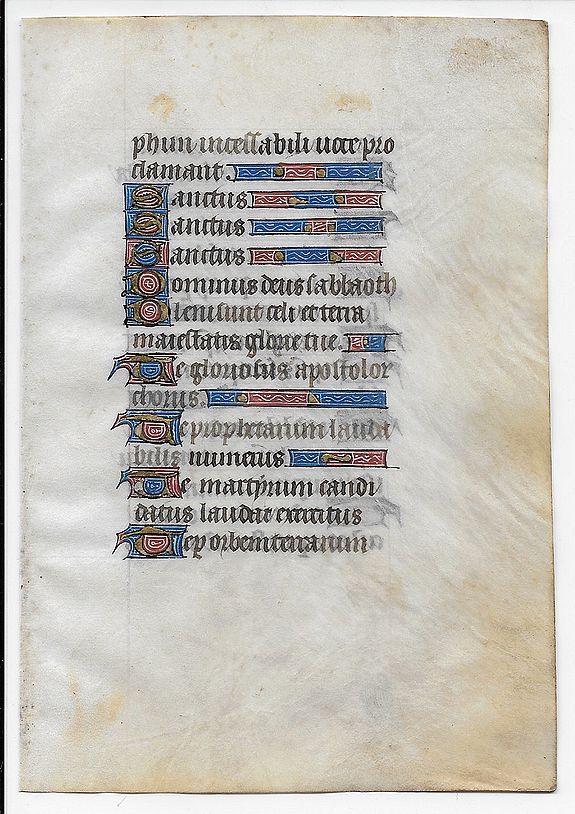 phun incessabili uoce pro
clamant.
Sanctus
Sanctus
Sanctus
Dominus deus sabbaoth
Pleni sunt celi et terra
maiestatis glorie tue.
Te gloriosus apostolor
chorus.
Te prophetarum lauda
bilis numerus.
Te martyrum candi
datus laudat exercitus
Te per orbem terrarum